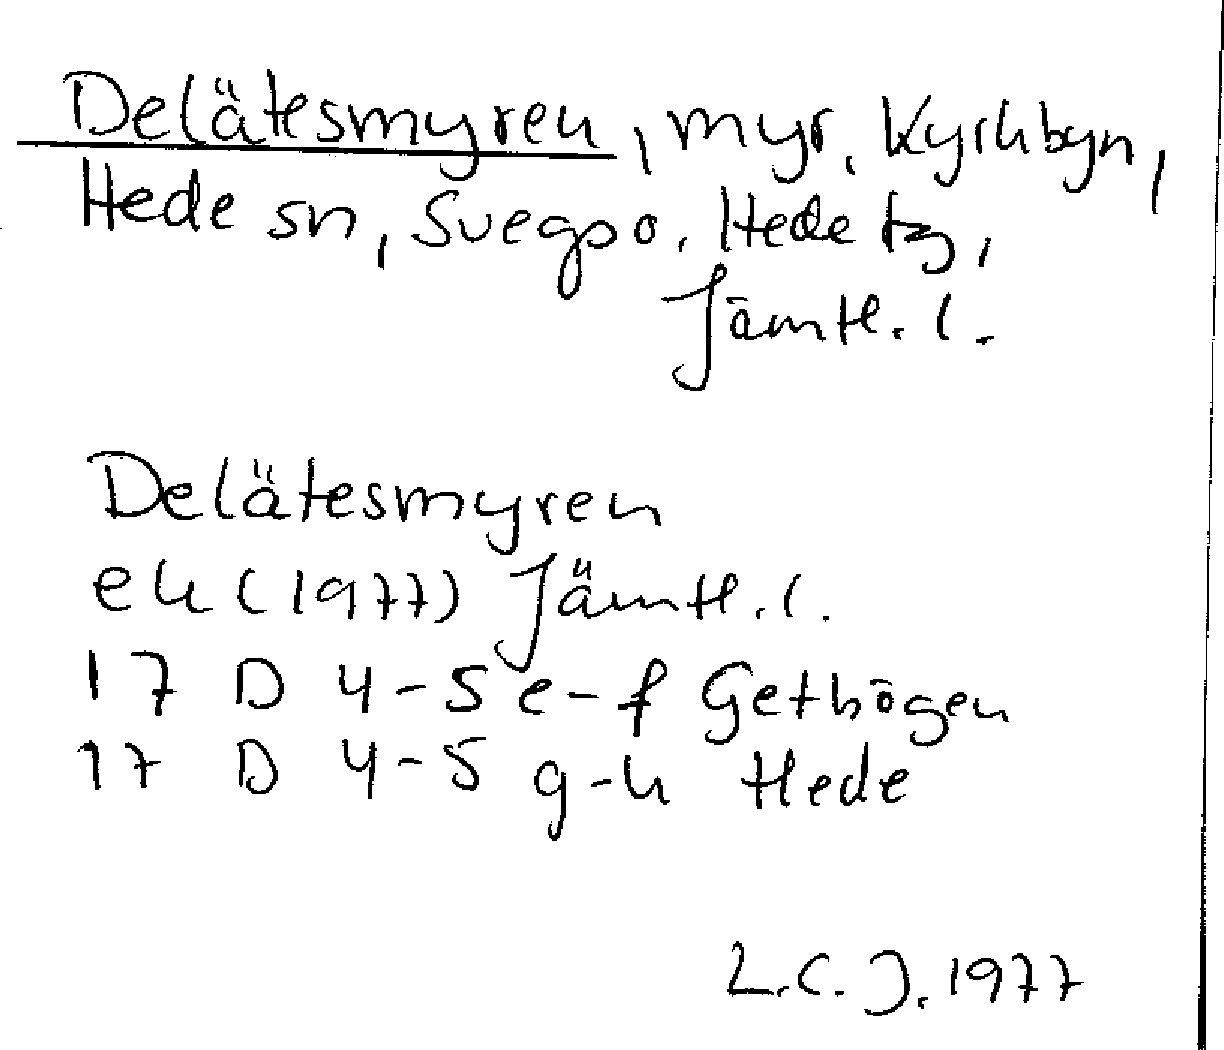 Delätesmyren, myr, Kyrkbyn,
Hede sn, Svegs po, Hede tg,
Jämtl. l.
Delätesmyren
ek (1977) Jämtl. l.
17 D 4-5 e-f Gethögen
17 D 4-5 g-h Hede
L.C.J. 1977